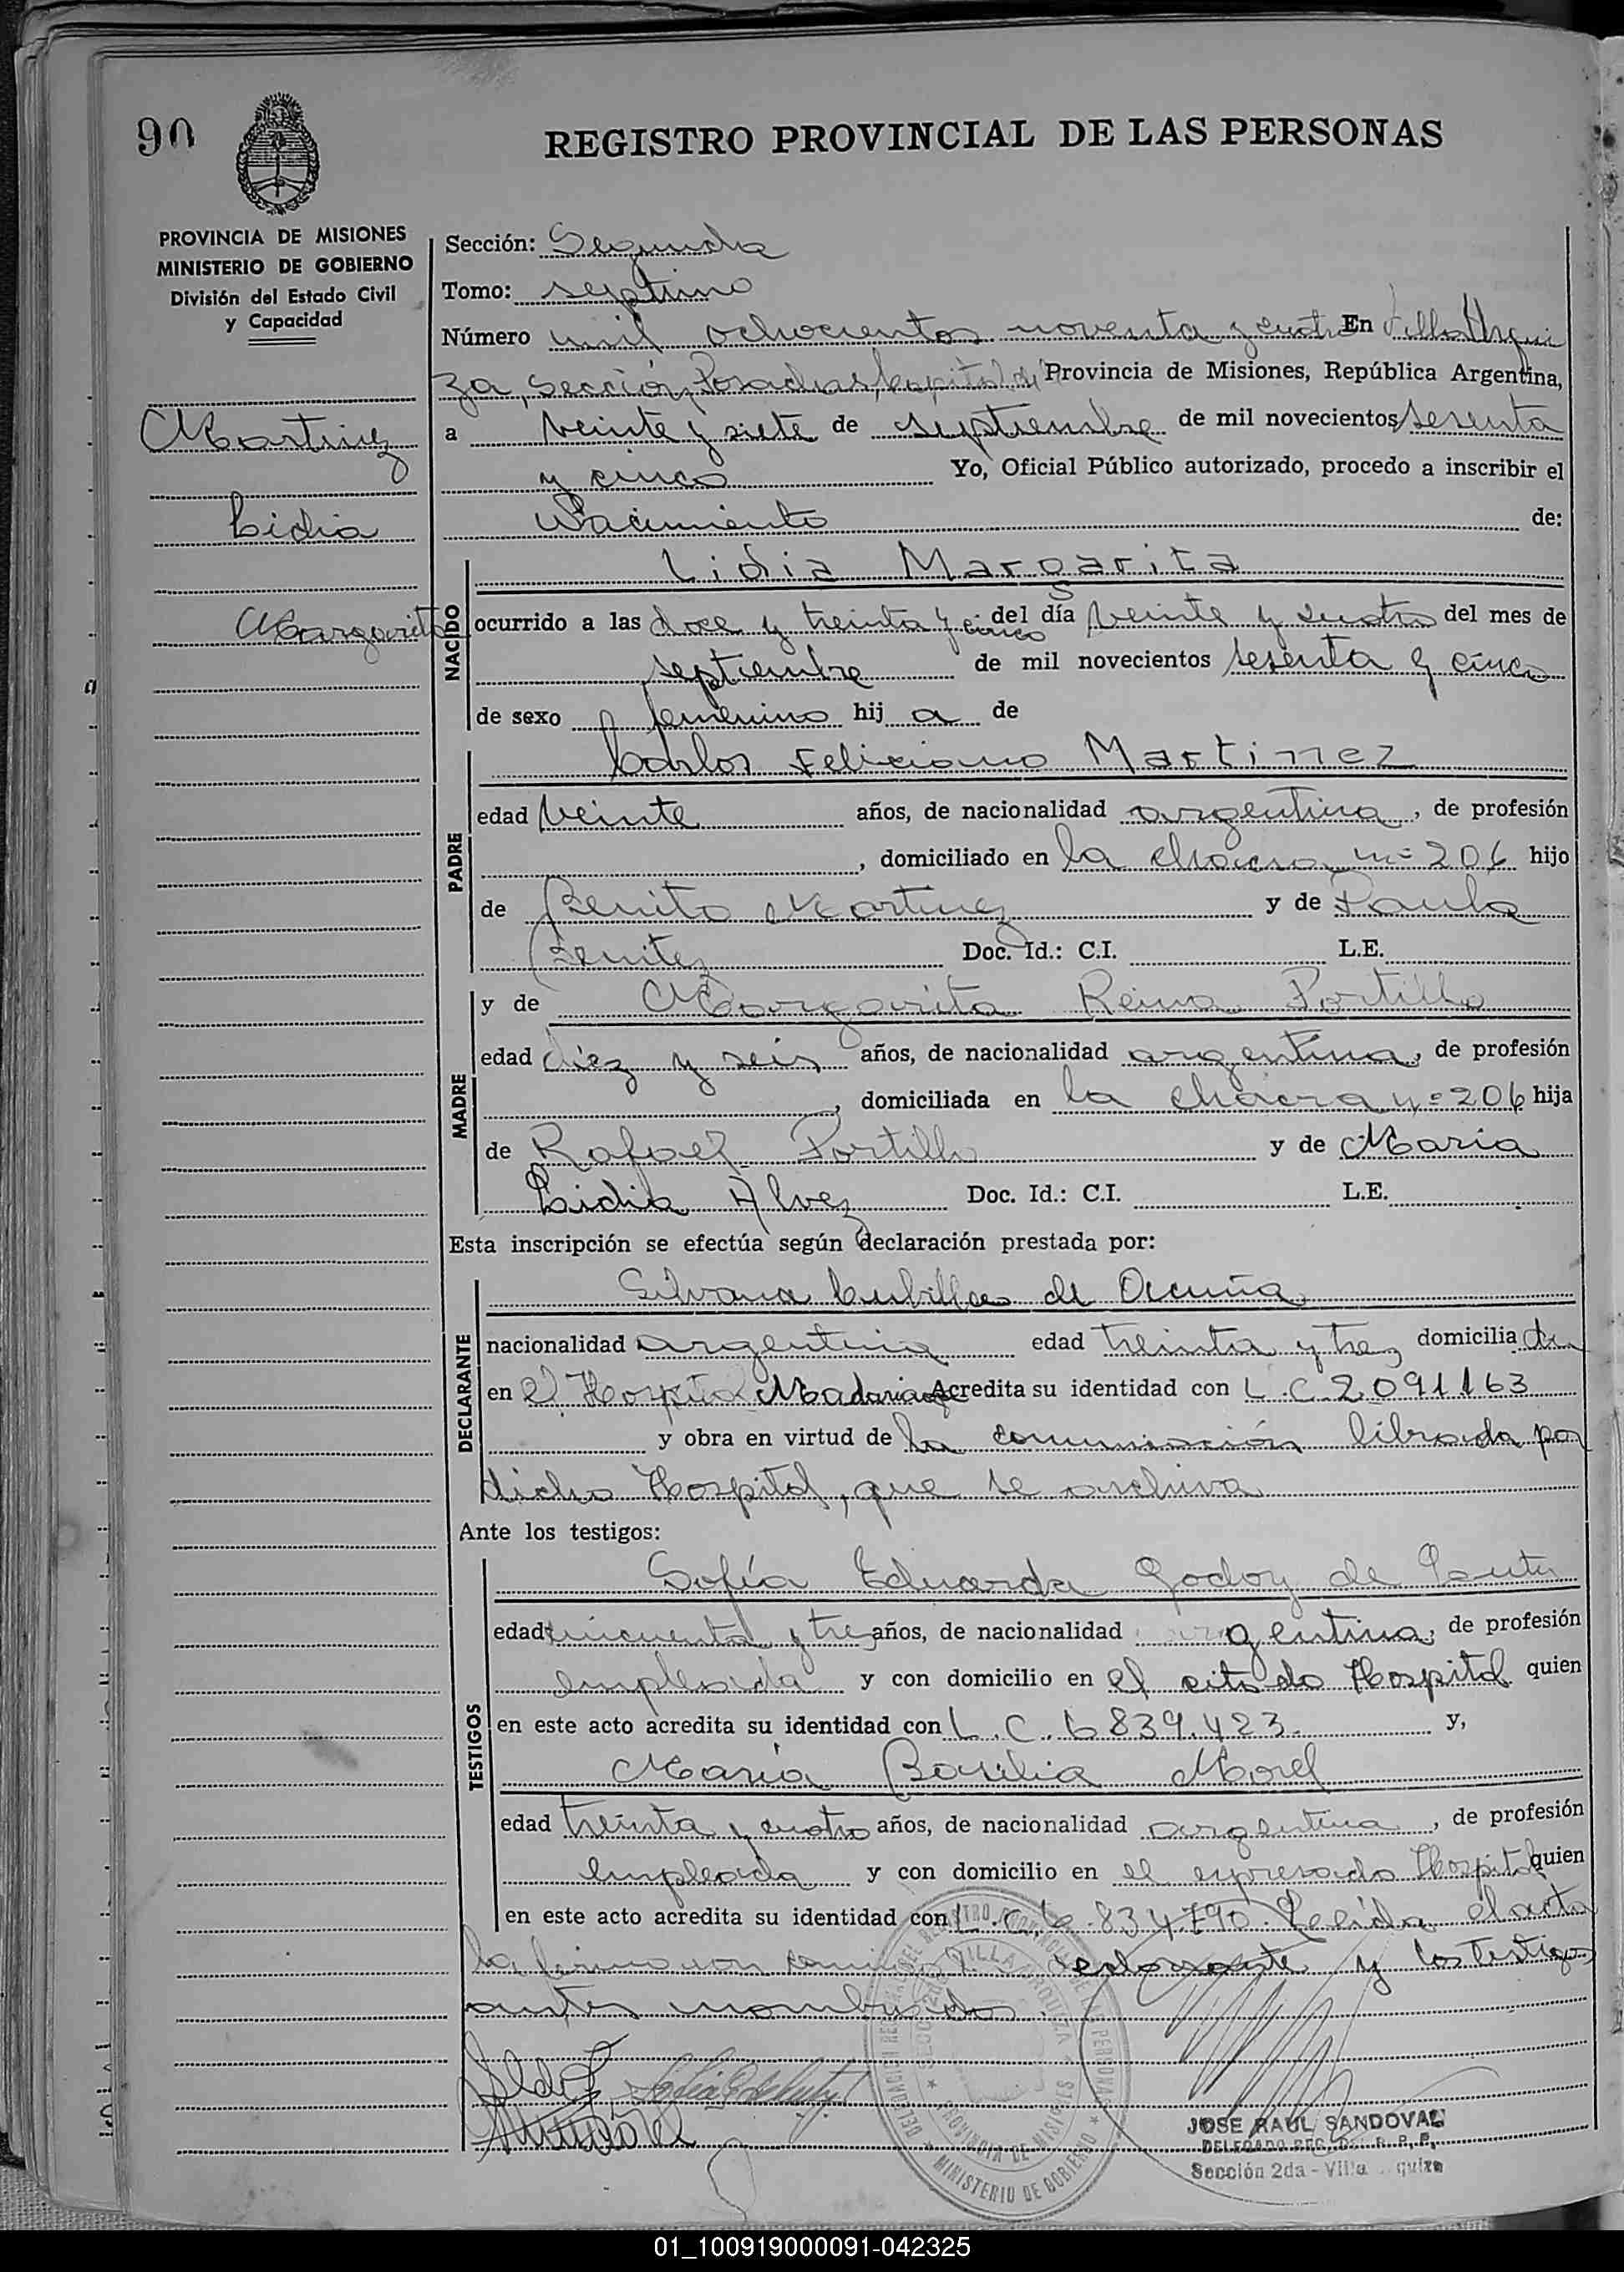 90
REGISTRO PROVINCIAL DE LAS PERSONAS
PROVINCIA DE MISIONES
MINISTERIO DE GOBIERNO
División del Estado Civil
y Capacidad
Martinez
Lidia
Margarita
Sección: Segunda
Tomo: septimo
Número mil ochocientos noventa y cuatro En Villa Urqui
za, sección Posadas, Capital de Provincia de Misiones, República Argentina,
a veinte y siete de septiembre de mil novecientos sesenta
y cinco Yo, Oficial Público autorizado, procedo a inscribir el
Nacimiento de:
NACIDO
Lidia Margarita
ocurrido a las doce y treinta y cinco del día veinte y cuatro del mes de
septiembre de mil novecientos sesenta y cinco
de sexo femenino hij a de
PADRE
Carlos Feliciano Martinez
edad veinte años, de nacionalidad argentina, de profesión
, domiciliado en la chacra nº 206 hijo
de Benito Martinez y de Paula
Benitez Doc. Id.: C.I. L.E.
MADRE
y de Margarita Reina Portillo
edad diez y seis años, de nacionalidad argentina, de profesión
, domiciliada en la chacra nº 206 hija
de Rafael Portillo y de Maria
Lidia Alvez Doc. Id.: C.I. L.E.
Esta inscripción se efectúa según declaración prestada por:
DECLARANTE
Silvana Cubillas de Ocuña
nacionalidad argentina edad treinta y tres domicilia da
en el Hospital Madariaga Acredita su identidad con L.C. 2.091.163
y obra en virtud de la comunicación librada por
dicho Hospital, que se archiva
Ante los testigos:
TESTIGOS
Sofía Eduarda Godoy de
edad cincuenta y tres años, de nacionalidad argentina, de profesión
empleada y con domicilio en el citado Hospital quien
en este acto acredita su identidad con L.C. 6.839.423. y,
María Basilia Morel
edad treinta y cuatro años, de nacionalidad argentina, de profesión
empleada y con domicilio en el expresado Hospital quien
en este acto acredita su identidad con L.C. 6.834.790. Leída el acta
la firman conmigo declarante y los testigos
antes nombrados.
DELEGACION REGIONAL DEL REGISTRO PROVINCIAL DE LAS PERSONAS
SECCION 2da VILLA URQUIZA
PROVINCIA DE MISIONES
MINISTERIO DE GOBIERNO
JOSE RAUL SANDOVAL
DELEGADO REG. DEL R. P. P.
Sección 2da - Villa quiza
01_100919000091-042325